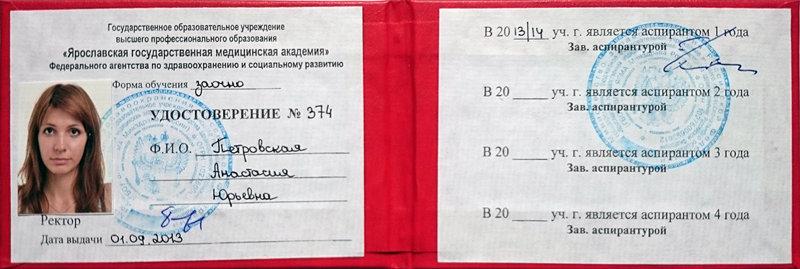 Государственное образовательное учреждение
высшего профессионального образования
«Ярославская государственная медицинская академия»
Федерального агентства по здравоохранению и социальному развитию
Форма обучения заочно
УДОСТОВЕРЕНИЕ № 374
Ф.И.О. Петровская
Анастасия
Юрьевна
Ректор
Дата выдачи 01.09.2013
В 20 13/14 уч. г. является аспирантом 1 года
Зав. аспирантурой
В 20 _____ уч. г. является аспирантом 2 года
Зав. аспирантурой
В 20 _____ уч. г. является аспирантом 3 года
Зав. аспирантурой
В 20 _____ уч. г. является аспирантом 4 года
Зав. аспирантурой